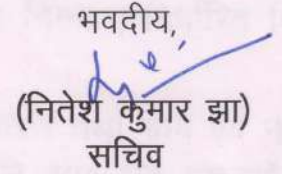 भवदीय,
(नितेश कुमार झा)
सचिव